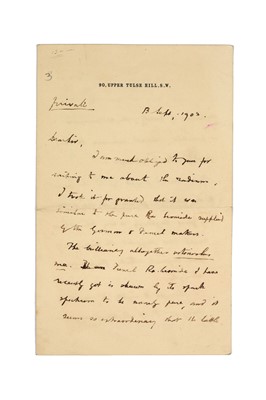 3
90, UPPER TULSE HILL, S.W.
Private
13 Sept, 1903.
Dear Sir,
I am much obliged to you for
writing to me about the radium.
I took it for granted that it was
similar to the pure Ra bromide supplied
by the German & French makers.
The brilliancy altogether astonishes
me. French Ra. bromide I have
recently got is shown by its spark
spectrum to be nearly pure, and it
seems so extraordinary that it